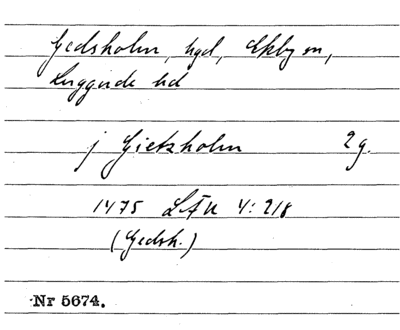 Gedsholm, hgd, Ekby sn,
Luggude hd
j Gietzholm 2 g.
1475 LFU 4: 218
(Gedsh.)
Nr 5674.